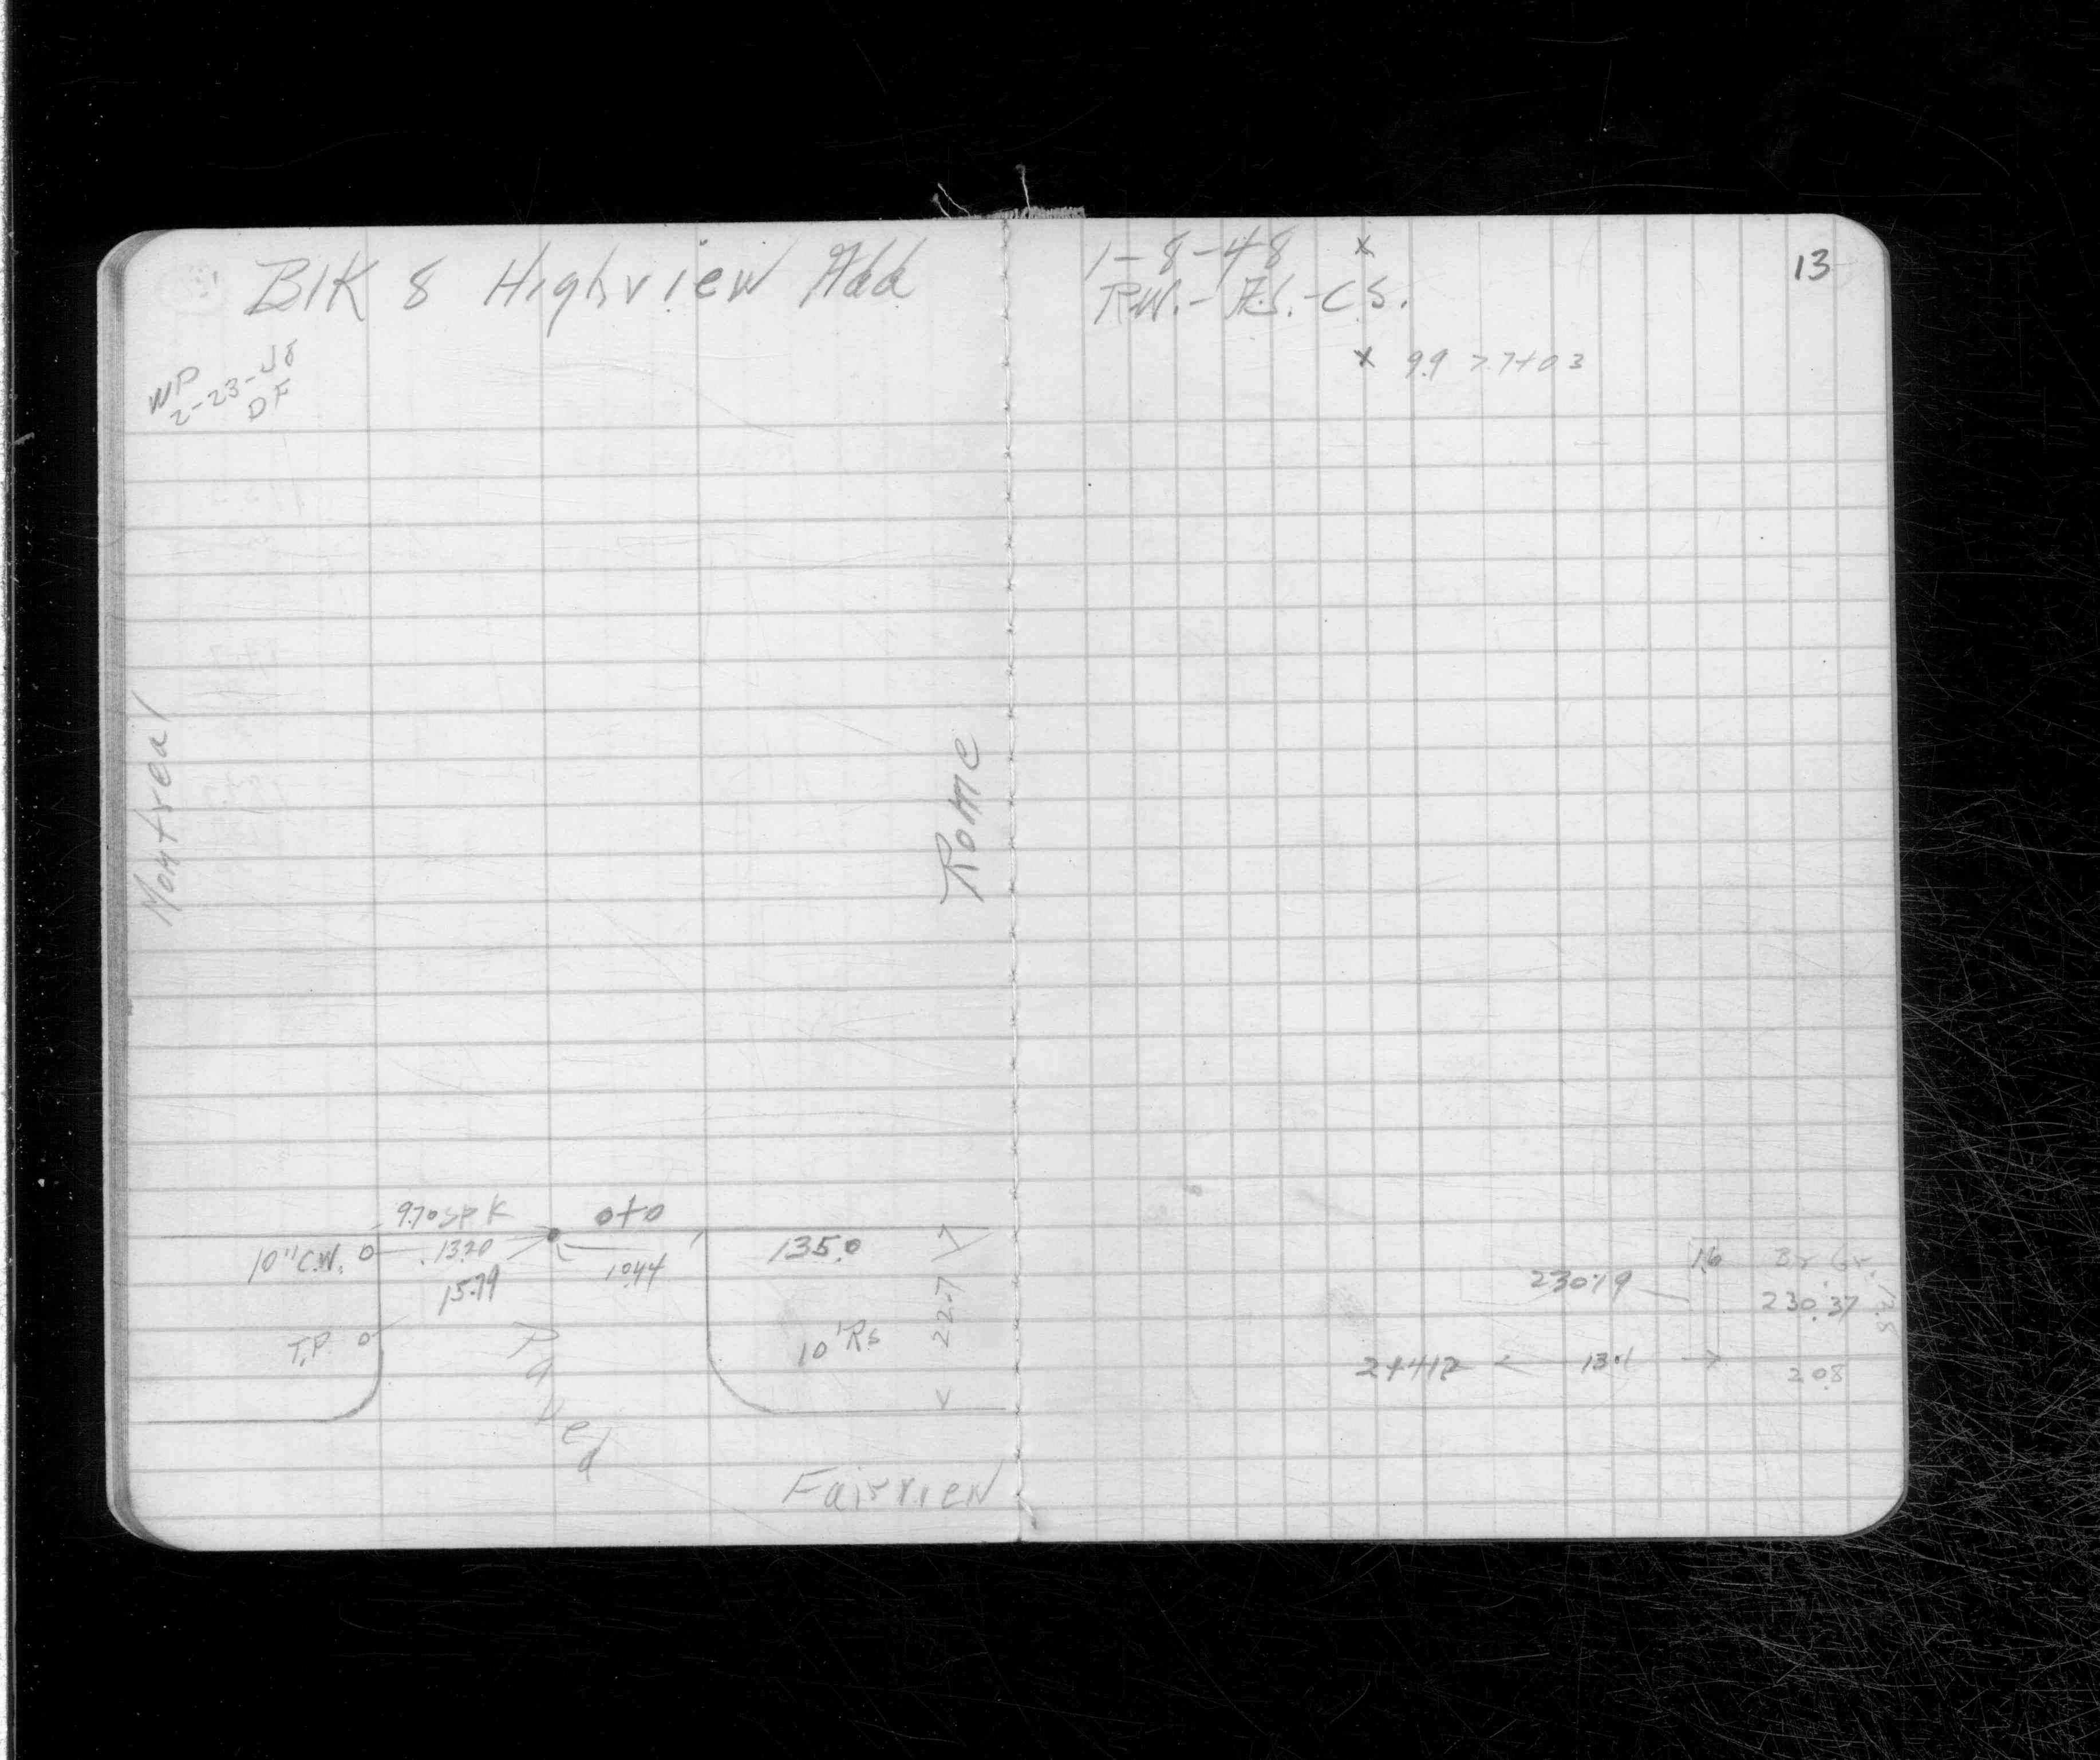 Blk 8 Highview Add
WP
2-23-48
DF
Montreal
Rome
9.70 SPK
0+0
10" C.W.
13.20
10.44
135.0
15.79
22.7
T.P
10' Rs
Paved
Fairview
1-8-48 x
13
R.W.- F.S.-C.S.
x 9.9 > 7+03
230.19
1.6
Br. Gr.
230.37
13.8
2+41.2
13.1
20.8